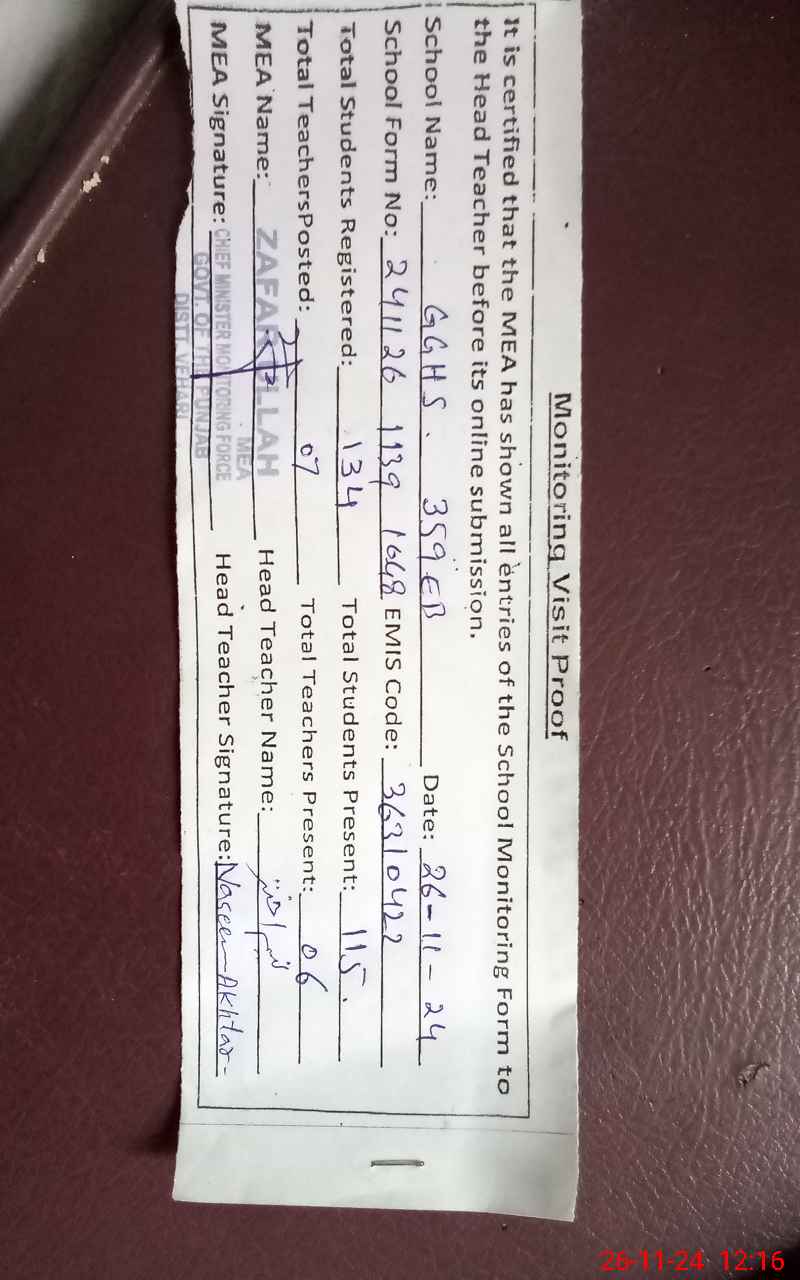 Monitoring Visit Proof
It is certified that the MEA has shown all entries of the School Monitoring Form to
the Head Teacher before its online submission.
School Name: GGHS. 359 EB Date: 26-11-24
School Form No: 241126 1139 1648 EMIS Code: 36310422
Total Students Registered: 134 Total Students Present: 115.
Total TeachersPosted: 07 Total Teachers Present: 06
MEA Name: ZAFAR ULLAH Head Teacher Name: نسیم اختر
MEA
MEA Signature: CHIEF MINISTER MONITORING FORCE Head Teacher Signature: Naseem Akhtar-
GOVT. OF THE PUNJAB
DISTT. VEHARI
26-11-24 12:16